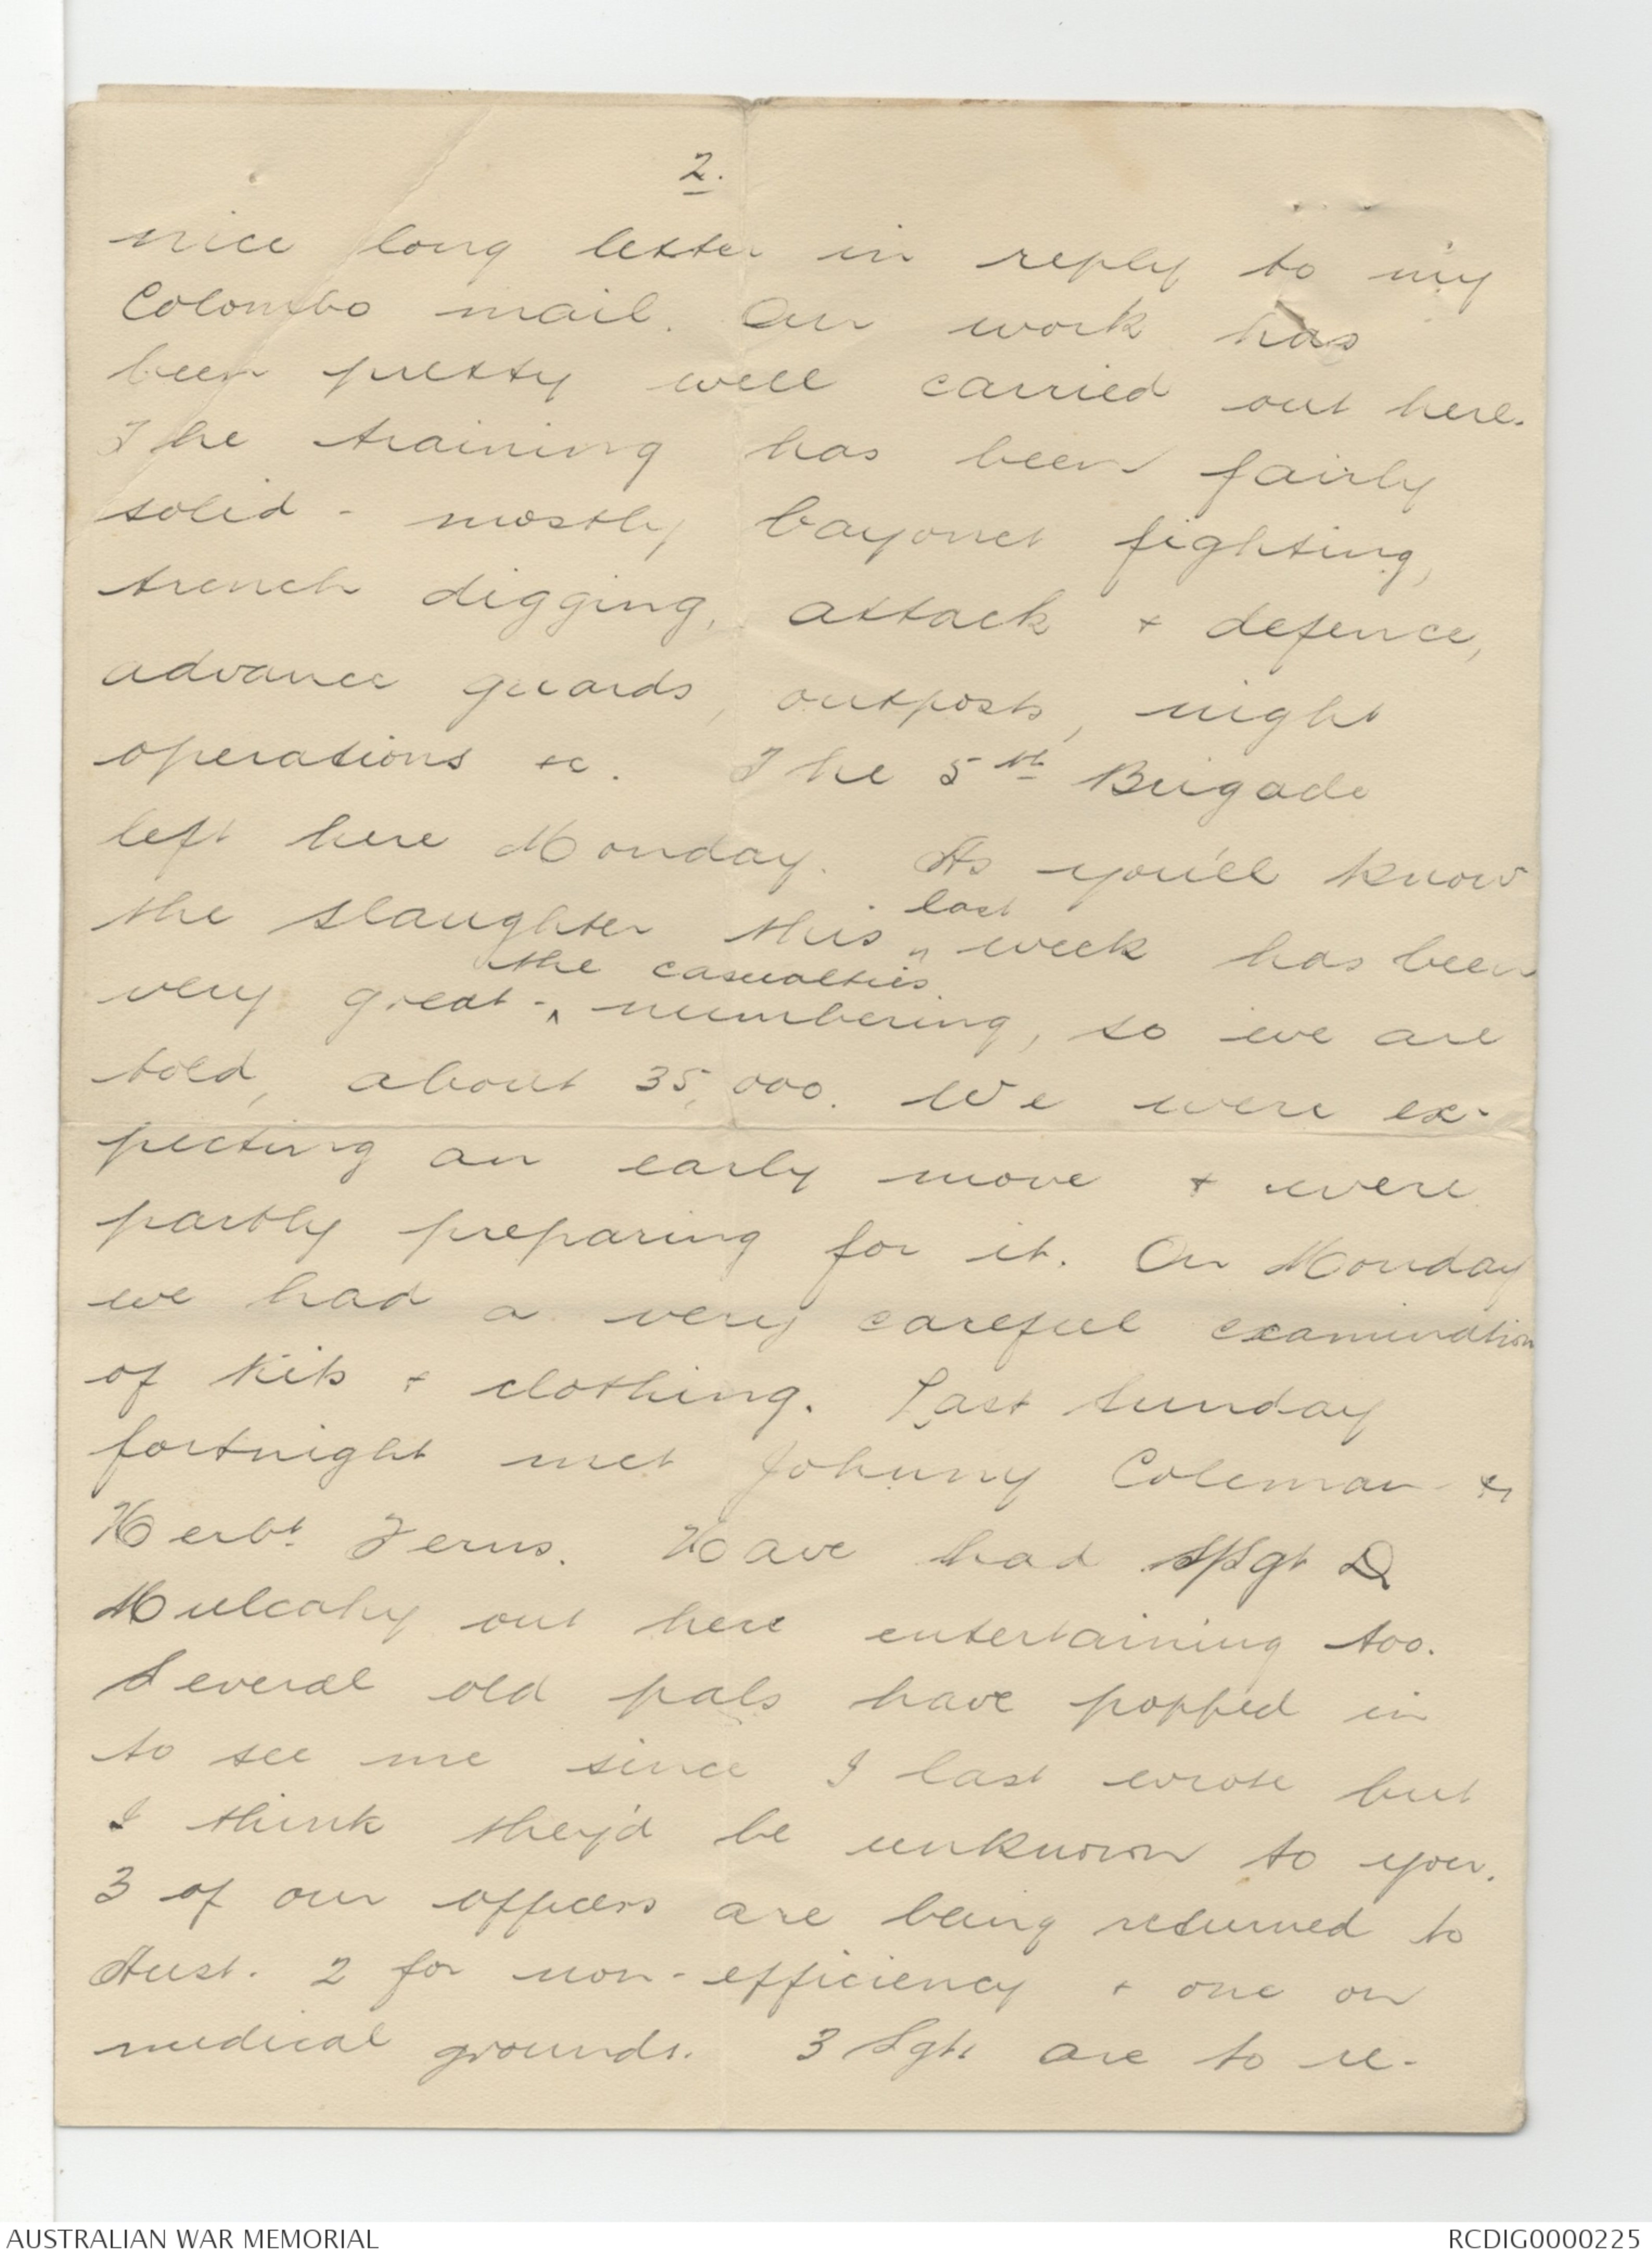 2.
nice long letter in reply to my
Colombo mail. Our work has
been pretty well carried out here.
The training has been fairly
solid - mostly bayonet fighting,
trench digging, attack + defence,
advance guards, outposts, night
operations &c. The 5th Brigade
left here Monday. As you'll know
the slaughter this last week has been
very great - the casualties numbering, so we are
told, about 35,000. We were ex-
pecting an early move + were
partly preparing for it. On Monday
we had a very careful examination
of kits + clothing. Last Sunday
fortnight met Johnny Coleman &
Herbt. Ferns. Have had S/Sgt D
Mulcahy out here entertaining too.
Several old pals have popped in
to see me since I last wrote but
I think they'd be unknown to you.
3 of our officers are being returned to
Aust. 2 for non-efficiency + one on
medical grounds. 3 Sgts are to re-
AUSTRALIAN WAR MEMORIAL
RCDIG0000225